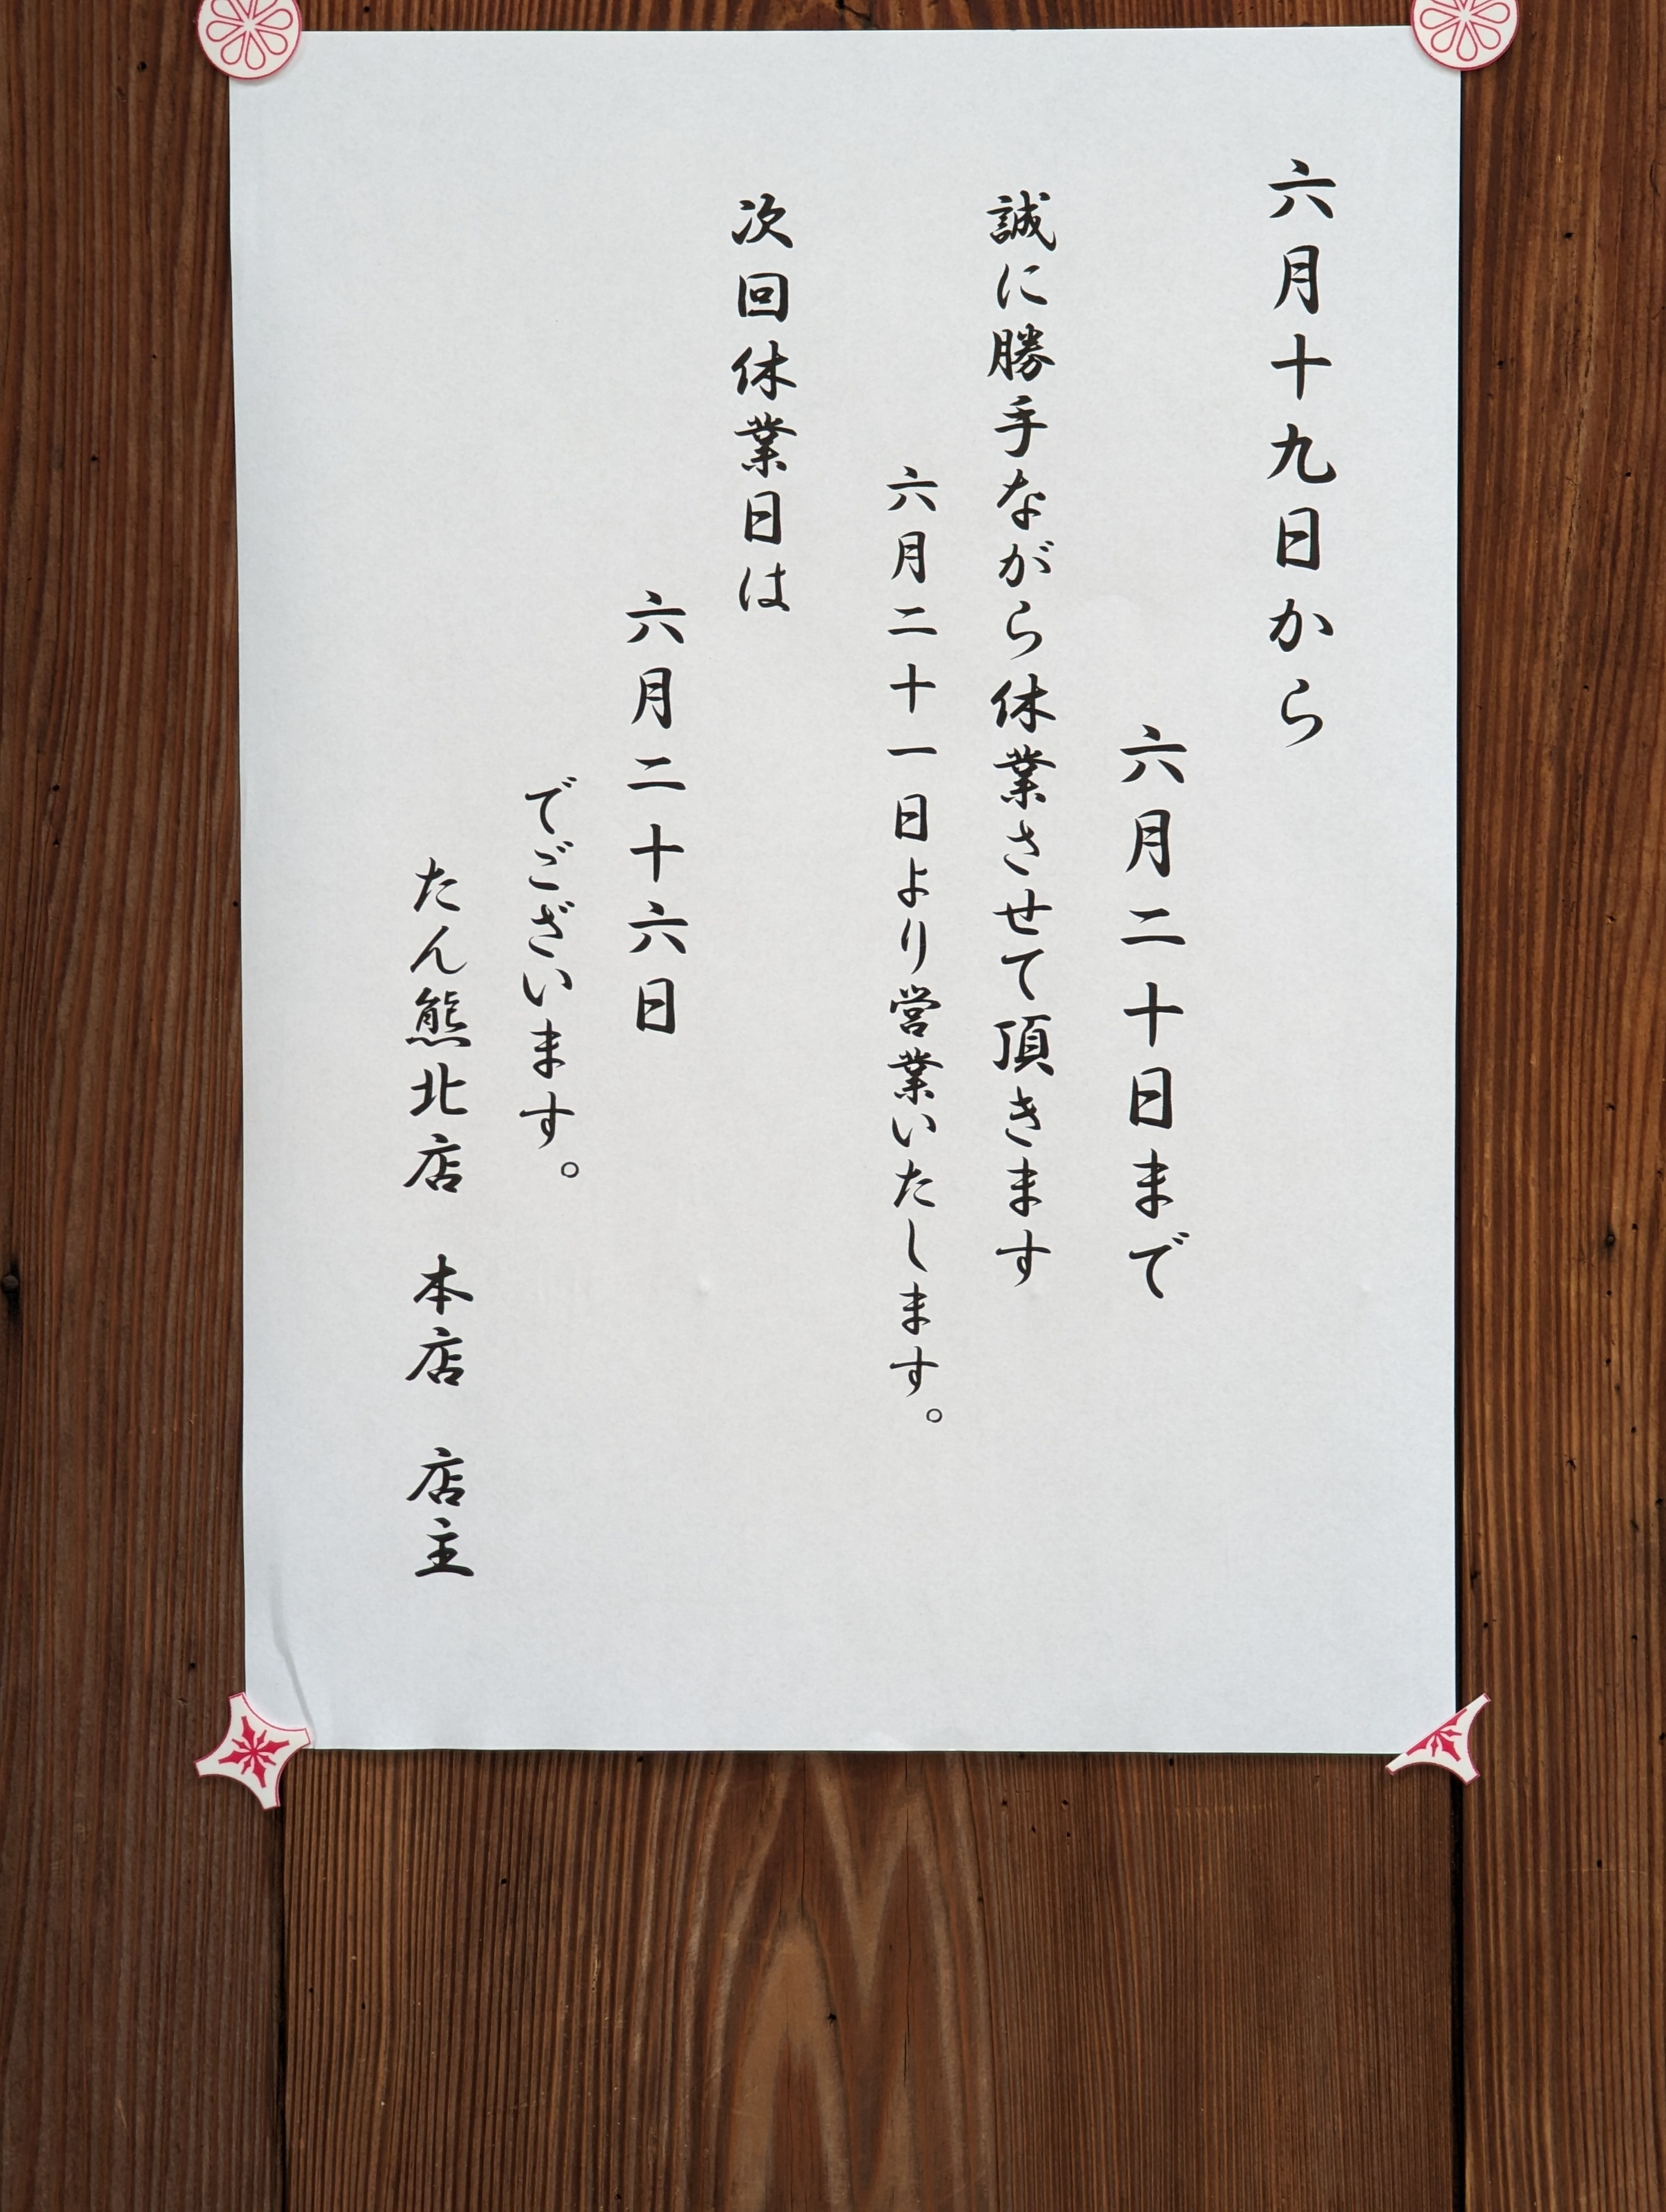 六月十九日から
六月二十日まで
誠に勝手ながら休業させて頂きます
六月二十一日より営業いたします。
次回休業日は
六月二十六日
でございます。
たん熊北店　本店　店主